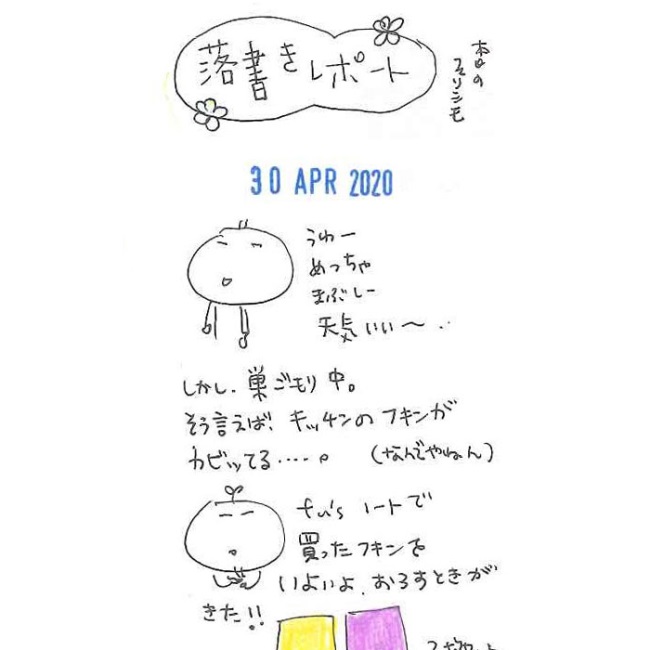 落書きレポート
本日の
30 APR 2020
うわー
めっちゃ
まぶしー
天気いい〜 ..
しかし、巣ごもり中。
そう言えば、キッチンのフキンが
カビッてる‥‥。(なんでやねん)
fu's ハートで
買ったフキンを
いよいよ、おろすときが
きた!!